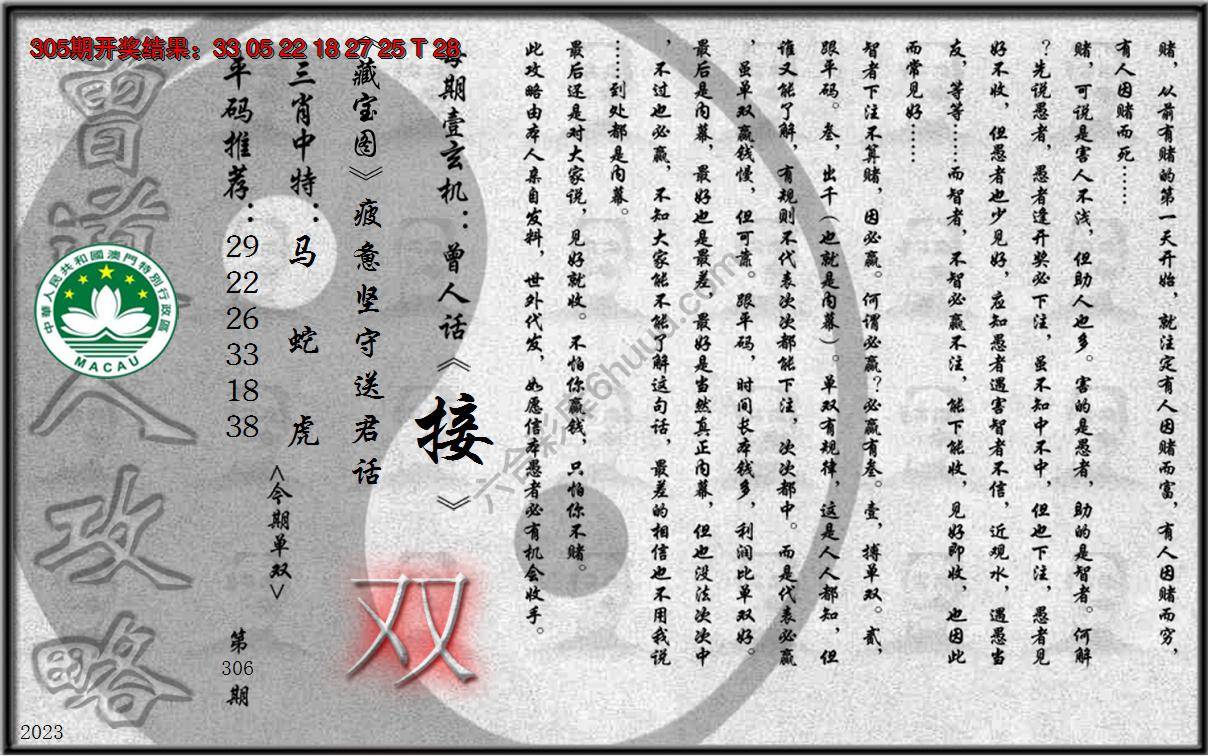 305期开奖结果：33 05 22 18 27 25 T 28
赌，从前有赌的第一天开始，就注定有人因赌而富，有人因赌而穷，
有人因赌而死……
赌，可说是害人不浅，但助人也多。害的是愚者，助的是智者。何解
？先说愚者，愚者逢开奖必下注，虽不知中不中，但也下注，愚者见
好不收，但愚者也少见好，应知愚者遇害智者不信，近观水，遇愚当
友，等等……而智者，不智必赢不注，能下能收，见好即收，也因此
而常见好……
智者下注不算赌，因必赢。何谓必赢？必赢有叁。壹，搏单双。贰，
跟平码。叁，出千（也就是内幕）。单双有规律，这是人人都知，但
谁又能了解，有规则不代表次次都能下注，次次都中。而是代表必赢
，虽单双赢钱慢，但可靠。跟平码，时间长本钱多，利润比单双好。
最后是内幕，最好也是最差，最好是当然真正内幕，但也没法次次中
，不过也必赢，不知大家能不能了解这句话，最差的相信也不用我说
……到处都是内幕。
最后还是对大家说，见好就收。不怕你赢钱，只怕你不赌。
此攻略由本人亲自发料，世外代发，如愿信本愚者必有机会收手。
每期壹玄机：曾人话《接》
《藏宝图》疲惫坚守送君话
三肖中特：马 蛇 虎
平码推荐：29 22 26 33 18 38
<今期单双>
双
第
306
期
曾道人攻略
中華人民共和國澳門特別行政區
MACAU
2023
六合彩库6huuu.com